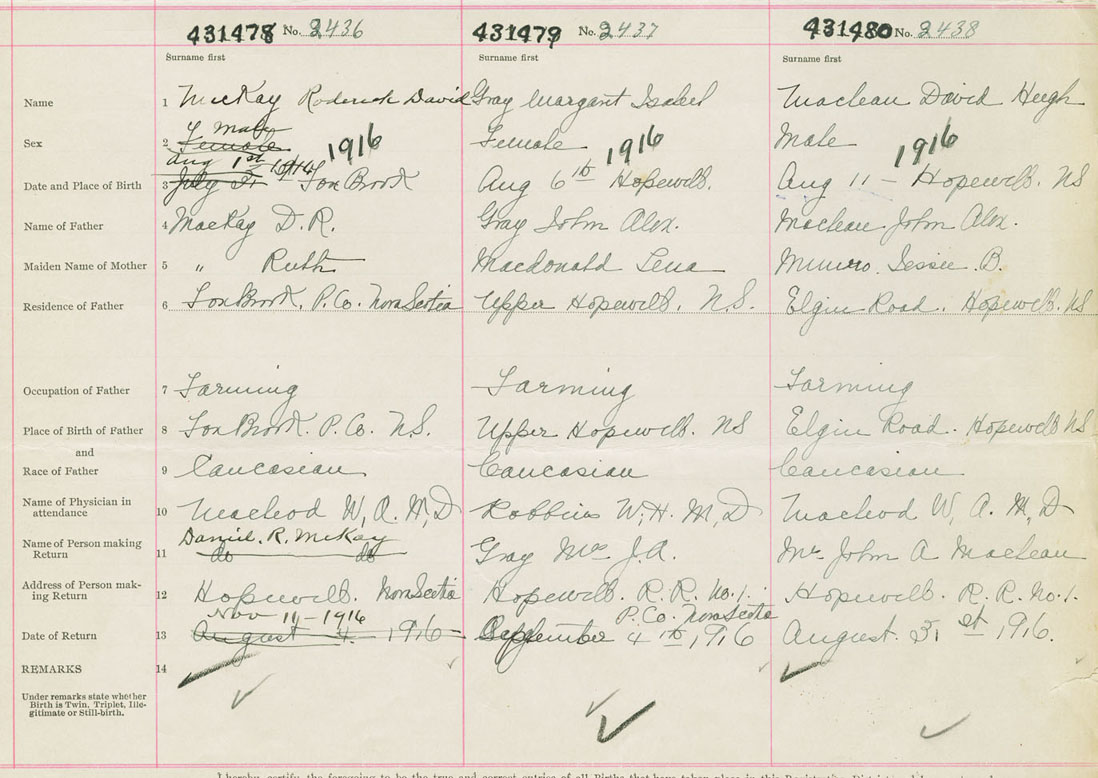 431478 No. 2436 431479 No. 2437 431480 No. 2438
Surname first Surname first Surname first
Name 1 McKay Roderick David Gray Margart Isabel Maclean David Hugh
Male
Sex 2 Female 1916 Female 1916 Male 1916
Aug 1st 1914
Date and Place of Birth 3 July Fox Brook Aug 6th Hopewell. Aug 11 - Hopewell. NS
Name of Father 4 MacKay D. R. Gray John Alex. Maclean John Alex.
Maiden Name of Mother 5 " Ruth Macdonald Lena Munro Jessie B.
Residence of Father 6 Fox Brook. P. Co. Nova Scotia Upper Hopewell. N.S. Elgin Road. Hopewell. NS
Occupation of Father 7 Farming Farming Farming
Place of Birth of Father 8 Fox Brook. P. Co. N.S. Upper Hopewell. NS Elgin Road. Hopewell NS
and
Race of Father 9 Caucasian Caucasian Caucasian
Name of Physician in
attendance 10 Macleod W, A. M, D Robbins W, H. M, D Macleod W, A. M, D
Daniel. R. McKay
Name of Person making
Return 11 do do Gray Mrs J. A. Mrs John A Maclean
Address of Person mak-
ing Return 12 Hopewell. Nova Scotia Hopewell. R. R. No. 1. Hopewell. R. R. No. 1.
P. Co. Nova Scotia
Nov 11-1916
Date of Return 13 August 4 - 1916 September 4th, 1916 August. 31st, 1916.
REMARKS 14
Under remarks state whether
Birth is Twin, Triplet, Ille-
gitimate or Still-birth.
I hereby certify, the foregoing to be the true and correct entries of all Births that have taken place in this Registration District